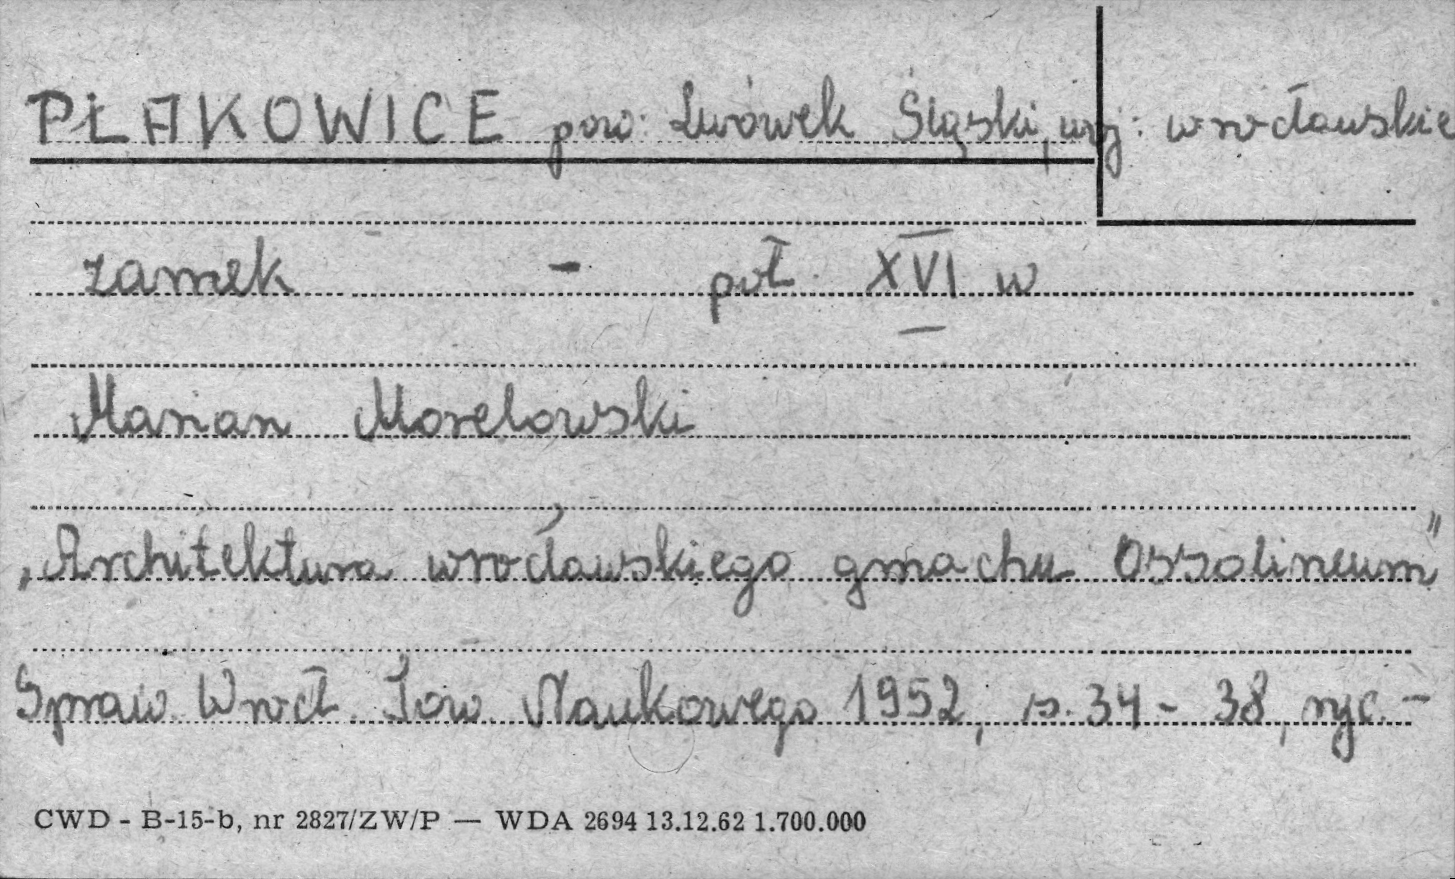 PŁAKOWICE pow: Lwówek Śląski, woj: wrocławskie
zamek - poł. XVI w
Marian Morelowski
„Architektura wrocławskiego gmachu Ossolineum"
Spraw. Wrocł. Tow. Naukowego 1952, s. 34 - 38, ryc. -
CWD - B-15-b, nr 2827/ZW/P — WDA 2694 13.12.62 1.700.000